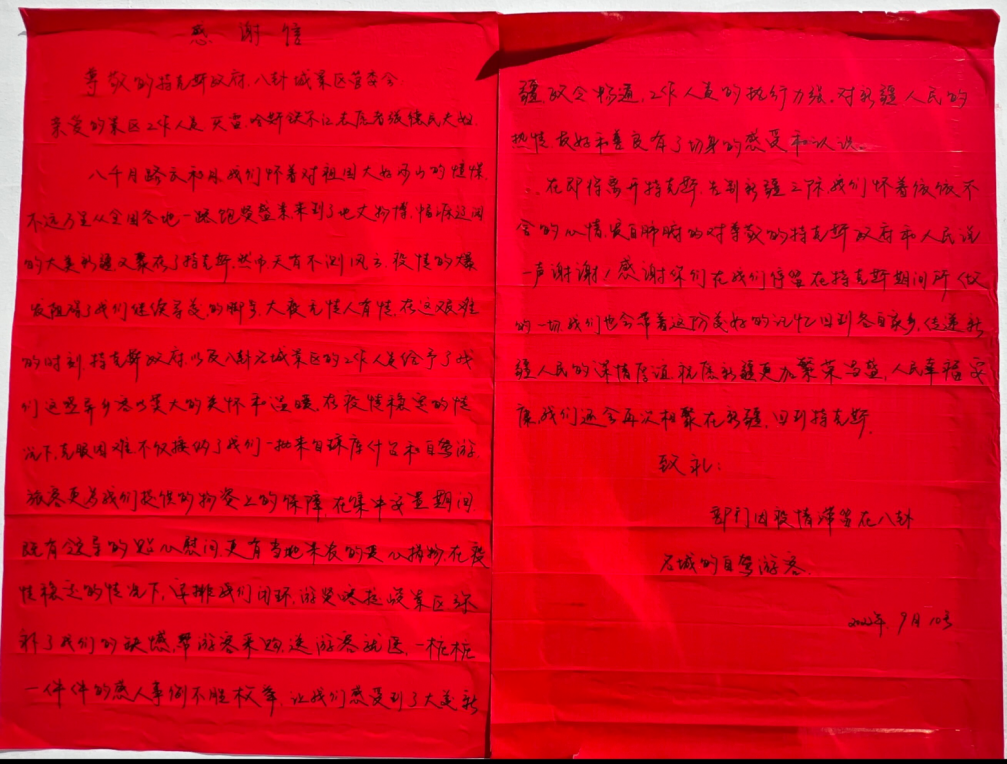 感谢信
尊敬的特克斯政府.八卦城景区管委会
亲爱的景区工作人员
八千里路云和月.我们怀着对祖国大好河山的憧憬
不远万里从全国各地一路跑来到了地大物博.
的大美新疆又聚在了特克斯.然而天有不测风云.疫情的爆
发阻碍了我们继续寻美的脚步.大疫无情人有情.在这艰难
的时刻特克斯政府.以及八卦石城景区的工作人员给予了我
们这些异乡客以莫大的关怀和温暖在疫情稳定的情
况下.克服困难不仅接纳了我们一批来自琼库什台和自驾游
旅客更为我们提供的物资上的保障在集中安置期间
既有领导的贴心慰问.更有当地农的爱心捐物.在疫
情稳定的情况下.安排我们闭环.游览景区弥
补了我们的缺憾.帮游客采购.送游客就医.一桩桩
一件件的感人事例不胜枚举.让我们感受到了大美新
疆政令畅通.工作人员的执行力强.对新疆人民的
热情友好和善良有了切身的感受和认识.
在即将离开特克斯.告别新疆之际我们怀着依依不
舍的心情.发自肺腑的对尊敬的特克斯政府和人民说
一声谢谢!感谢你们在我们停留在特克斯期间所做
的一切.我们也会带着这份美好的记忆回到各自家乡.传递新
疆人民的深情厚谊.祝愿新疆更加繁荣昌盛.人民幸福安
康.我们还会再次相聚在新疆.回到特克斯.
致礼:
部刊因疫情滞留在八卦
石城的自驾游客.
2022年9月10号